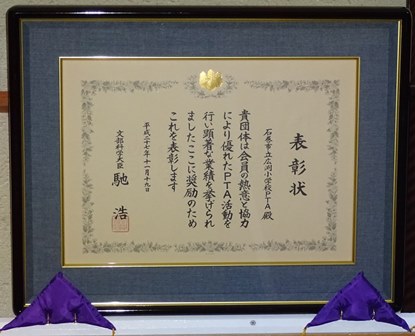 表彰状
石巻市立広渕小学校PTA殿
貴団体は会員の熱意と協力
により優れたPTA活動を
行い顕著な業績を挙げられ
ましたここに奨励のため
これを表彰します
平成二十七年十一月十九日
文部科学大臣 馳 浩